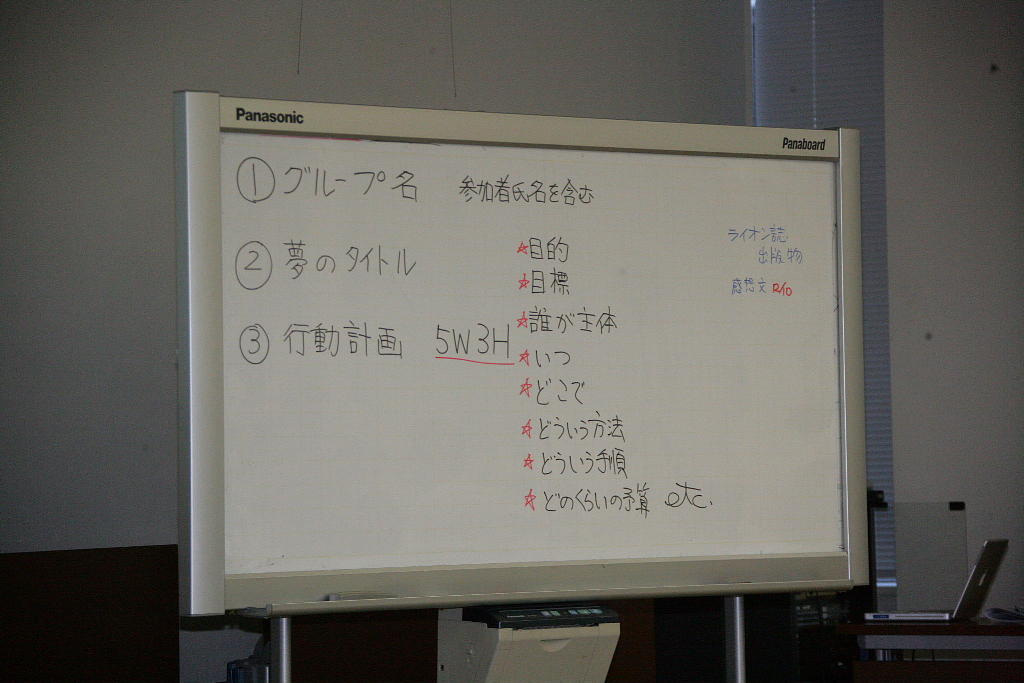 Panasonic
Panaboard
① グループ名 参加者氏名を含む
② 夢のタイトル
③ 行動計画 5W3H
☆目的
☆目標
☆誰が主体
☆いつ
☆どこで
☆どういう方法
☆どういう手順
☆どのくらいの予算 etc.
ライオン誌
出版物
感想文 R10